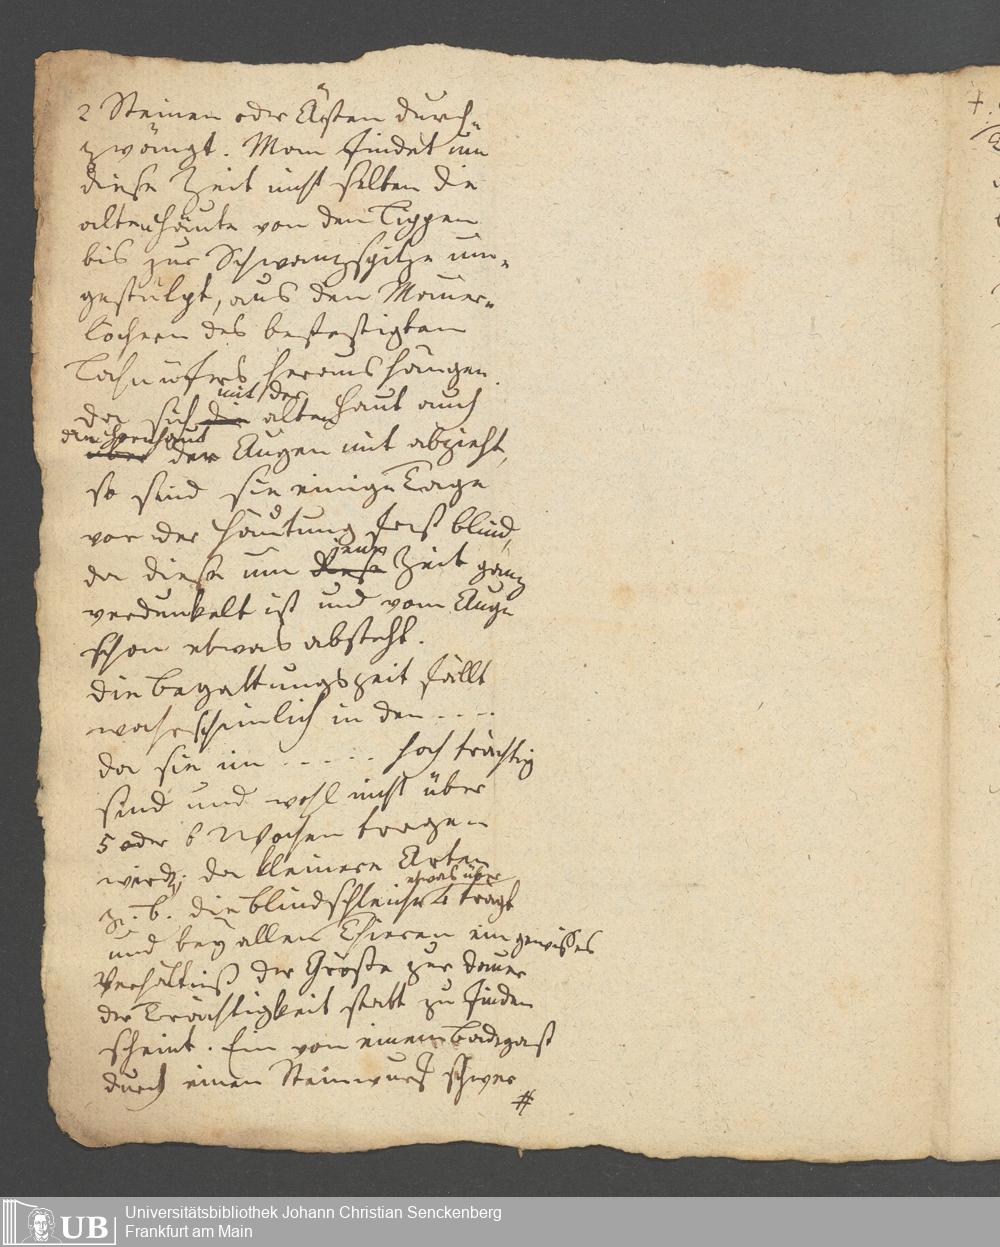 2 Steinen oder Ästen durch-
zwängt. Man findet um
diese Zeit nicht selten die
alten Häute von den Lippen
bis zur Schwanzspitze um-
gestülpt, aus den Mauer-
löchern des befestigten
heraus hängen.
mit der
Da sich die alten Haut auch
die Hornhaut
über der Augen mit abzieht,
so sind sie einige Tage
vor der Häutung fast blind,
jene
da diese um diese Zeit ganz
verdunkelt ist und vom Auge
schon etwas absteht.
die Begattungszeit fällt
wahrscheinlich in den ....
da sie im ..... hoch trächtig
sind und wohl nicht über
5 oder 6 Wochen tragen
werd; da kleinere Arten
etwas über
z. b. die Blindschleiche 4 tragt
und bey allen Thieren ein gewisses
Verhältniß der Größe zur Dauer
der Trächtigkeit statt zu finden
scheint. Ein von einem Badegast
durch einen Steinwurf schwer
#
UB
Universitätsbibliothek Johann Christian Senckenberg
Frankfurt am Main